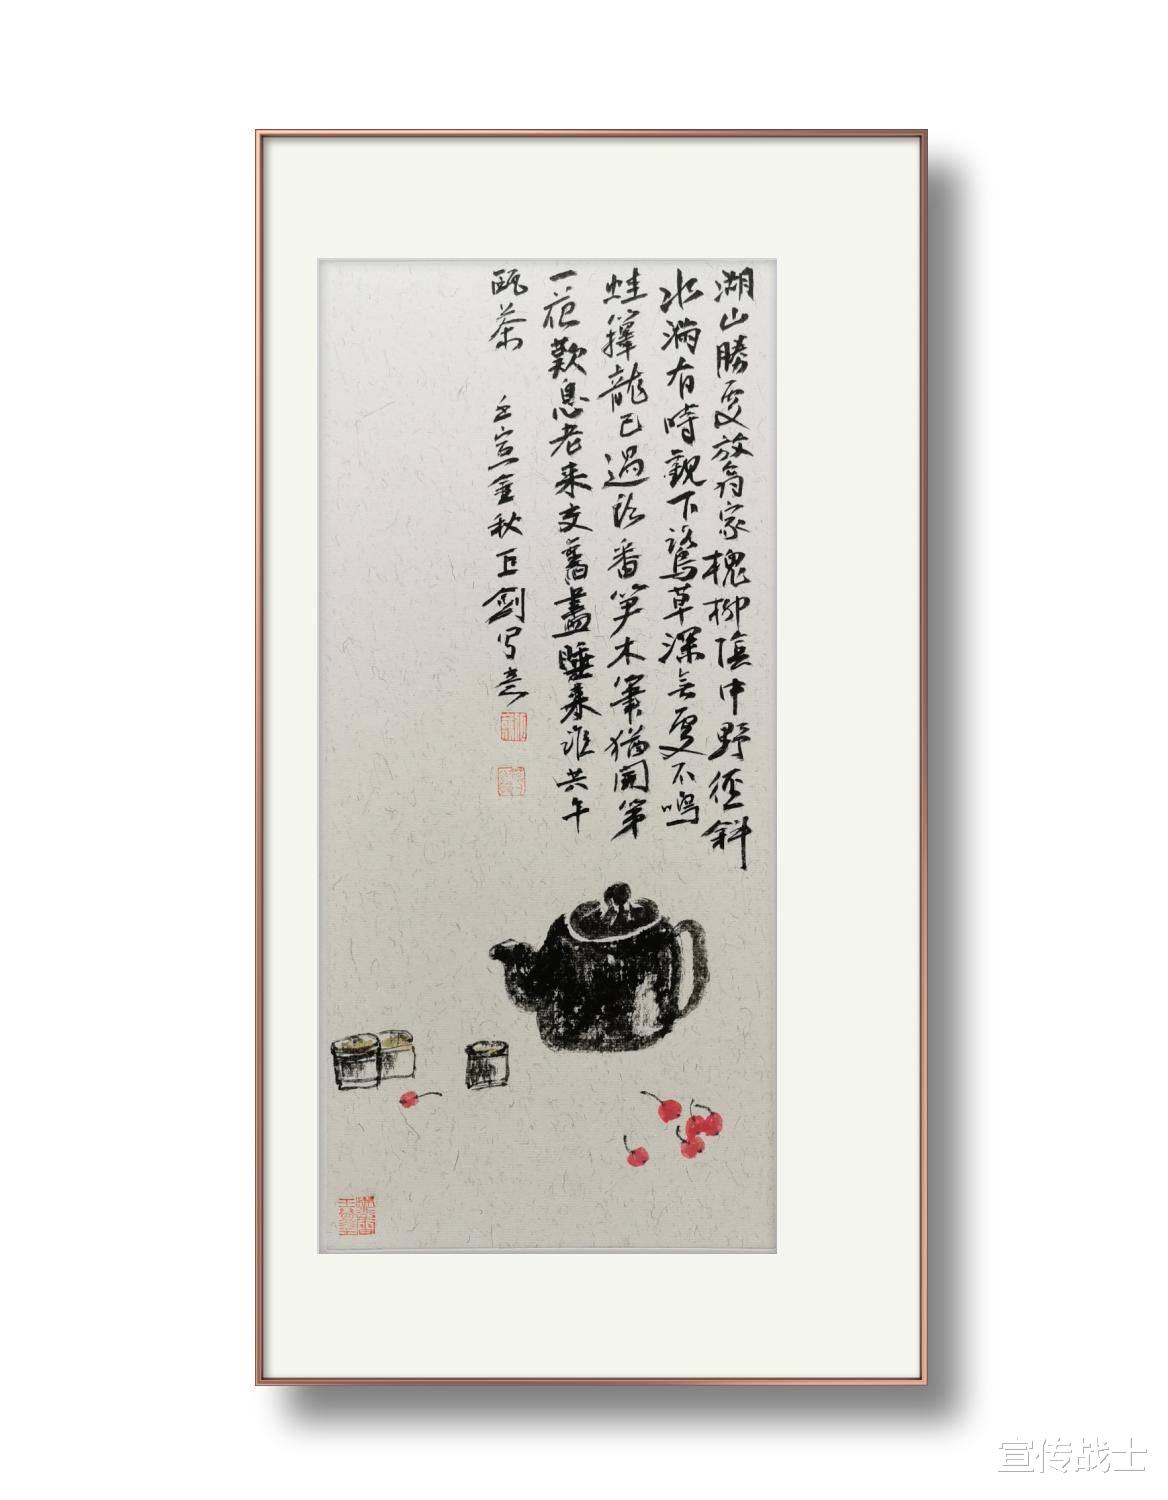 湖山勝處放翁家槐柳陰中野徑斜
水滿有時觀下鷺草深无處不鳴
蛙籜龍已過头番笋木筆猶開第
一花歎息老来交舊盡睡来谁共午
甌茶
壬寅金秋 劍写意
宣传战士